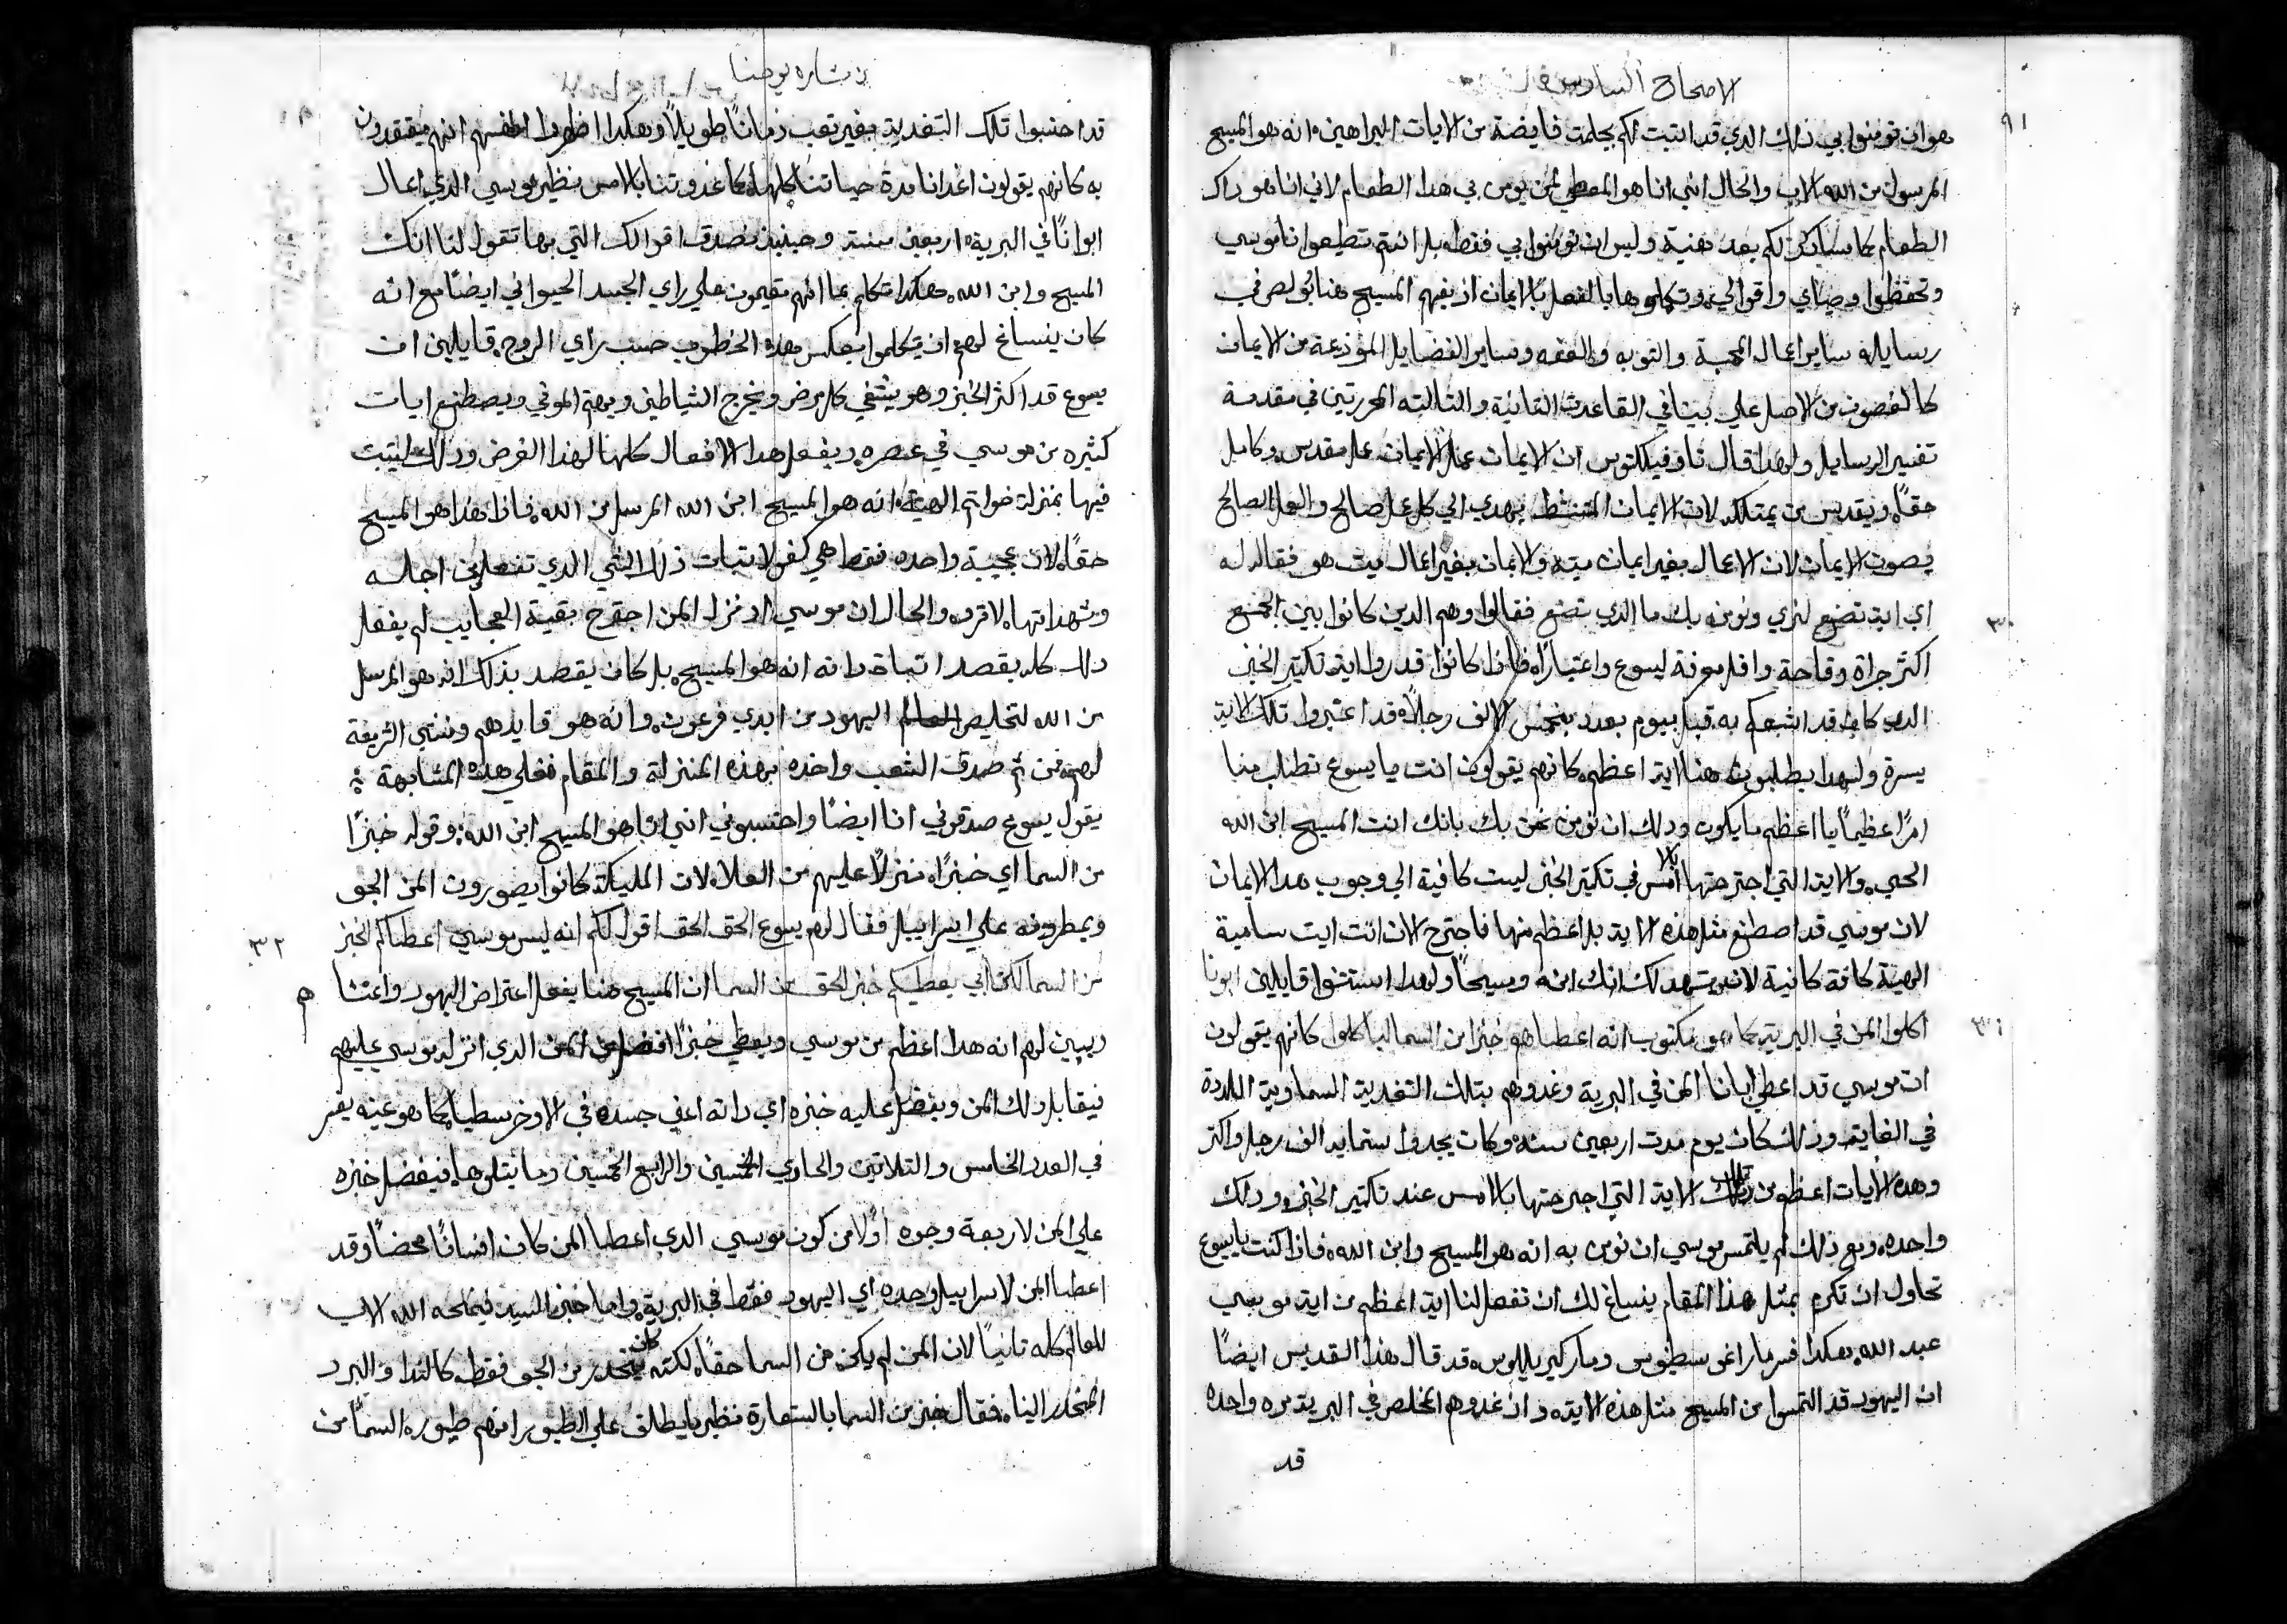 الاصحاح السادس
٩١
هو ان تومنوا بي ذلك الدي قد اتيت لكم بعلامت فايضة من الايات البراهين انه هو المسيح
المرسول من الله الاب والحال انني انا هو المعطي لمن يومن بي هدا الطعام لاني انا هو داك
الطعام كما ساذكر لكم بعد هنية وليس ان تومنوا بي فقط بل انتم تطيعوا ناموسي
وتحفظوا وصياي واقوالي وتكملوها بالفعل بالايمان اذ يفهم المسيح هنا بولص في
رسايله ساير اعمال المحبة والتوبه والعفه وساير الفضايل المودعة من الايمان
كالغصون من الاصل علي بيننا في القاعدت التانية والتالته المحررتين في مقدمة
تفسير الرسايل ولهدا قال تاوفيلكتوس ان الايمان عمل الايمان عمل مقدس وكامل
حقاً ويقدس من يمتلكه لان الايمان المنشط يهدي الي كل عمل صالح والعمل الصالح
يصون الايمان لان الاعمال بغير ايمان ميته والايمان بغير اعمال ميت هو فقالوا له
٣٠
اي اية تصنع لنري ونومن بك ما الذي تصنع فقالوا وهم الدين كانوا بين الجمع
اكتر جراة وقاحة واقل معرفة ليسوع واعتباراً فاذا كانوا قد راوا اية تكتير الخبز
الدي كان قد اشبعهم به قبل بيوم بعدد بخمس الاف رجلاً قد اعتبروا تلك الاية
يسرة ولهدا يطلبون هنا اية اعظم كانهم يقولون انت يا يسوع تطلب منا
امرًا عظيماً يا اعظم ما يكون ودلك ان نومن نحن بك بانك انت المسيح ابن الله
الحي والاية التي اجترحتها بالامس في تكتير الخبز ليست كافية الي وجوب هدا الايمان
لان موسي قد اصطنع مثل هذه الاية بل اعظم منها فاجترح الان انت ايت سامية
الهية كافة كافية لانه يشهد لك انك ابنه ومسيحاً ولهدا استتنوا قايلين ابونا
٣١
اكلوا المن في البرية كما هو مكتوب انه اعطاهم خبزا من السما لياكلوا كانهم يقولون
ان موسي قد اعطي ابانا المن في البرية وغدوهم بتلك التغدية السماوية اللدة
في الغاية وذلك كان يوم مدت اربعين سنه وكان يجدوا ستماية الف رجل واكتر
وهده الايات اعظم من تلك الاية التي اجترحتها بالامس عند تكتير الخبز ودلك
واحده ومع ذلك لم يلتمس موسي ان نومن به انه هو المسيح وابن الله فاذا كنت يا يسوع
تحاول ان تكرم بمثل هذا المقام ينساغ لك ان تفعل لنا اية اعظم من اية موسي
عبد الله هكدا فسر مار اغوسطينوس ومار كيريللوس قد قال هذا القديس ايضاً
ان اليهود قد التمسوا من المسيح مثل هذه الاية وان غدوهم المخلص في البرية مره واحده
قد
بشاره يوحنا
قد احتسبوا تلك التغدية بغير تعب زماناً طويلاً وهكدا اظهروا انفسهم انهم ميقتدون
به كانهم يقولون اغدانا مدة حياتنا كلها كما غدوتنا بالامس نظير موسي الدي اعال
ابوانا في البرية اربعين سنة وحينيذ نصدق اقوالك التي بها تقول لنا انك
المسيح وابن الله هكدا تكلم بما انهم مقيمون علي راي الجسد الحيواني ايضاً مع انه
كان ينساغ لهم ان يتكلموا بعكس هده الخطوب حسب راي الروح قايلين ان
يسوع قد اكثر الخبز وهو يشفي كل مرض ويخرج الشياطين ويهم الموتي ويصطنع ايات
كثيره من موسي في عصره ويفعل هدا الافعال كلها لهذا الغرض ودلك ليتبت
فيها بمنزلة خواتم الهية انه هو المسيح ابن الله المرسل من الله فاذا هذا هو المسيح
حقاً لان عجيبة واحده فقط هي كفو لاتبات ذلك الشي الدي تفعل من اجله
وشهداتها لا ترد والحال ان موسي اد نزل المن اجترح بقية العجايب لم يفعل
دلك كله بقصد اتبات داته انه هو المسيح بل كان يقصد بذلك انه هو المرسل
من الله لتخليص العالم اليهود من ايدي فرعون وانه هو قايدهم ومنشي الشريعة
لهم فمن تم صدقت الشعب واخذه بهذه المنزلة والمقام فعلي هده المشابهة
يقول يسوع صدقوني انا ايضاً واحتسبوني انني انا هو المسيح ابن الله وقوله خبزاً
من السما اي خبزاً منزلاً عليهم من العلا لان المليكة كانوا يصورون المن الجو
٣٢
ويمطرونه علي اسراييل فقال لهم يسوع الحق الحق اقول لكم انه ليس موسي اعطاكم الخبز
من السما لكن ابي يعطيكم خبز الحق من السما ان المسيح هنا يفعل اعتراض اليهود واغتشا
ويبين لهم انه هدا اعظم من موسي ويعطي خبزاً افضل من المن الدي انزله موسي عليهم
فيقابل دلك المن ويفضل عليه خبزه اي داته اعني جسده في الاوخرسطيا كما هو عينه يفسر
في العدد الخامس والتلاتين والحادي الخمسين والرابع الخمسين وما يتلوها فيفضل خبزه
علي المن لاربعة وجوه اولا من كون موسي الدي اعطا المن كان انساناً محضاً وقد
اعطا المن لاسراييل وحده اي اليهود فقط في البرية واما خبز السيد فيمنحه الله الاب
للعالم كله تانياً لان المن لم يكن من السما حقاً لكنه كان ينحدر من الجو فقط كالندا والبرد
المنحدر الينا فقال خبز من السما بالستعارة نظير ما يطلق علي الطيور انهم طيوره السما من